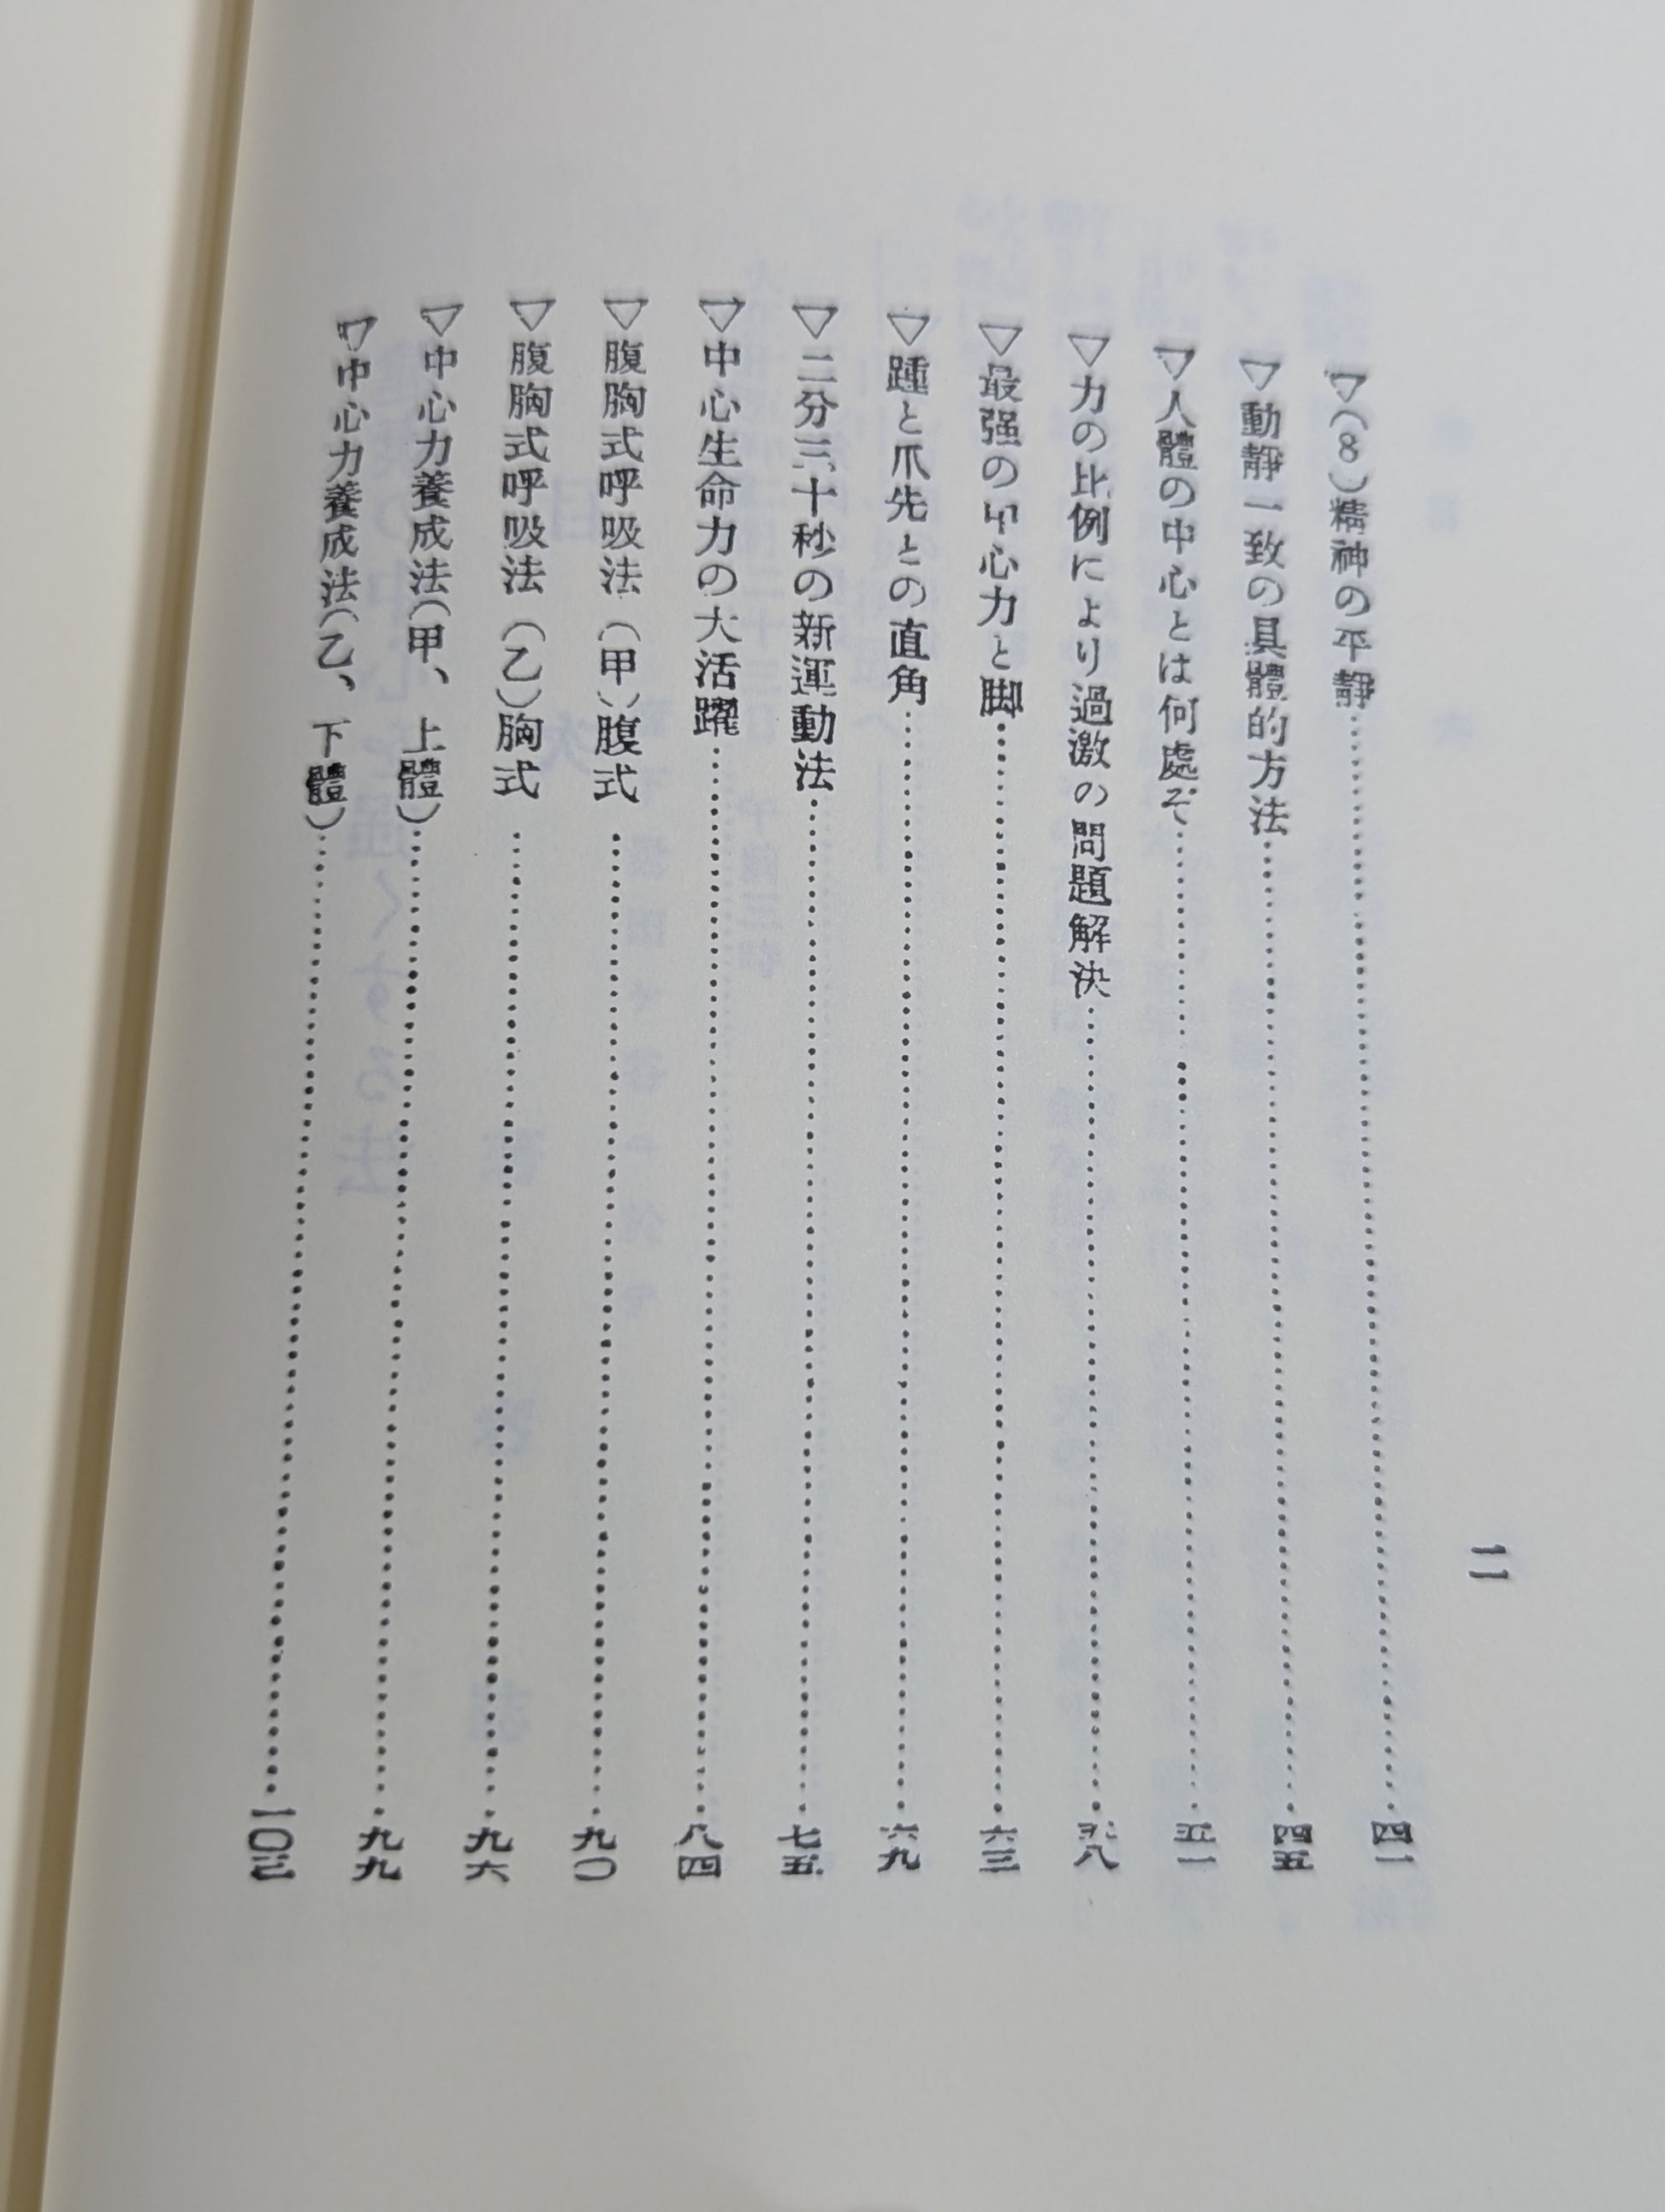 二
▽(8)精神の平靜……四一
▽動靜一致の具體的方法……四五
▽人體の中心とは何處ぞ……五一
▽力の比例により過激の問題解決……五八
▽最强の中心力と脚……六三
▽踵と爪先との直角……六九
▽二分三十秒の新運動法……七五
▽中心生命力の大活躍……八四
▽腹胸式呼吸法(甲)腹式……九〇
▽腹胸式呼吸法(乙)胸式……九六
▽中心力養成法(甲、上體)……九九
▽中心力養成法(乙、下體)……一〇